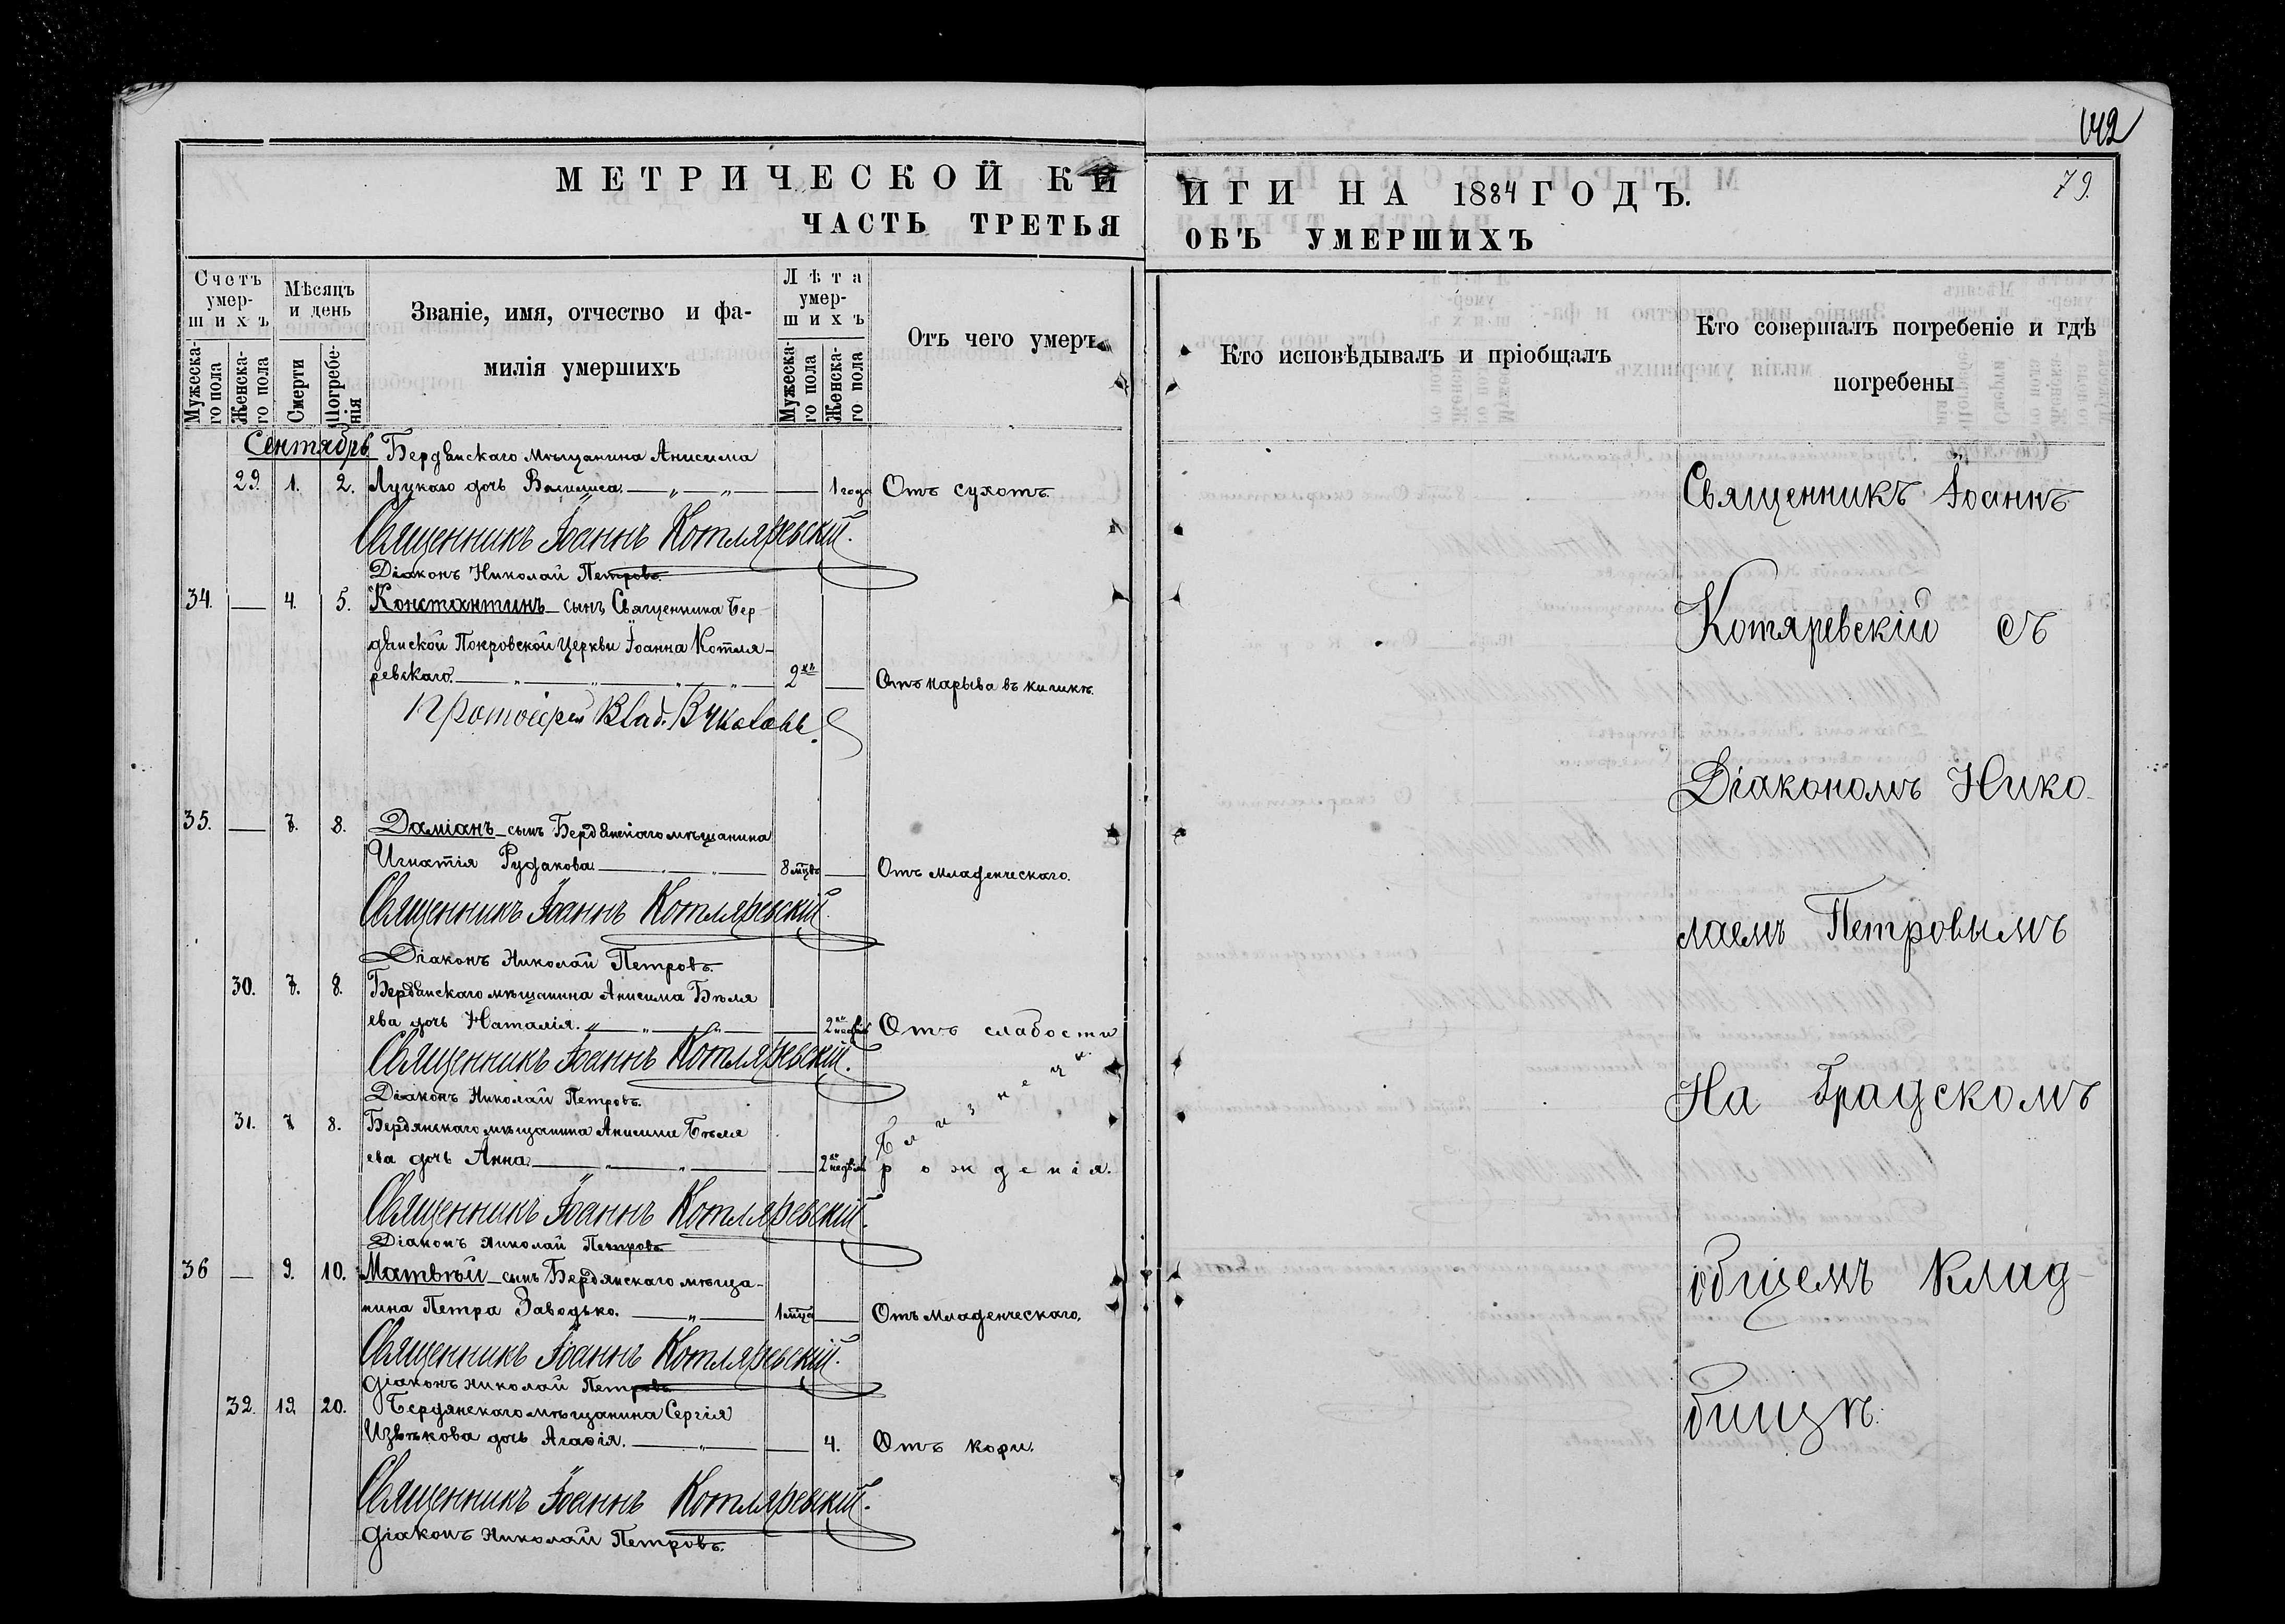 142
79.
МЕТРИЧЕСКОЙ КНИГИ НА 1884 ГОДЪ.
ЧАСТЬ ТРЕТЬЯ ОБЪ УМЕРШИХЪ
Счетъ умершихъ
Мужеска-го пола
Женска-го пола
Мѣсяцъ и день
Смерти
Погребе-нія
Званіе, имя, отчество и фа-
милія умершихъ
Лѣта умер-шихъ
Мужеска-го пола
Женска-го пола
Отъ чего умеръ
Кто исповѣдывалъ и пріобщалъ
Кто совершалъ погребеніе и гдѣ
погребены
Сентябрь Бердянскаго мѣщанина Анисима
29. 1. 2. Луцкаго дочь 1 года Отъ сухотъ.
Священникъ Іоаннъ Котляревскій.
Діаконъ Николай Петровъ.
34. — 4. 5. Константинъ – сынъ Священника Бер
дянской Покровской Церкви Іоанна Котля-
ревскаго. 2 — Отъ нарыва въ кишкѣ.
Протоіерей Влад.
35. — 7. 8. Даміанъ – сынъ Бердянскаго мѣщанина
Игнатія Рудакова. 8 мцвъ — Отъ младенческаго.
Священникъ Іоаннъ Котляревскій.
Діаконъ Николай Петровъ.
30. 7. 8. Бердянскаго мѣщанина Анисима Бѣля
ева дочь Наталія. 2 Отъ слабости
Священникъ Іоаннъ Котляревскій.
Діаконъ Николай Петровъ.
31. 7 8. Бердянскаго мѣщанина Анисима Бѣля
ева дочь Анна. 2 недѣл рожденія.
Священникъ Іоаннъ Котляревскій.
Діаконъ Николай Петровъ.
36 — 9. 10. Матвѣй – сынъ Бердянскаго мѣща-
нина Петра Заводько. 1 мцъ — Отъ младенческаго.
Священникъ Іоаннъ Котляревскій.
Діаконъ Николай Петровъ.
32. 19. 20. Бердянскаго мѣщанина Сергія
Извѣкова дочь Агафія. 4. Отъ кори.
Священникъ Іоаннъ Котляревскій.
Діаконъ Николай Петровъ.
Священникъ Іоаннъ
Котяревскій съ
Діакономъ Нико-
лаемъ Петровымъ
На Градскомъ
общемъ клад-
бищѣ.